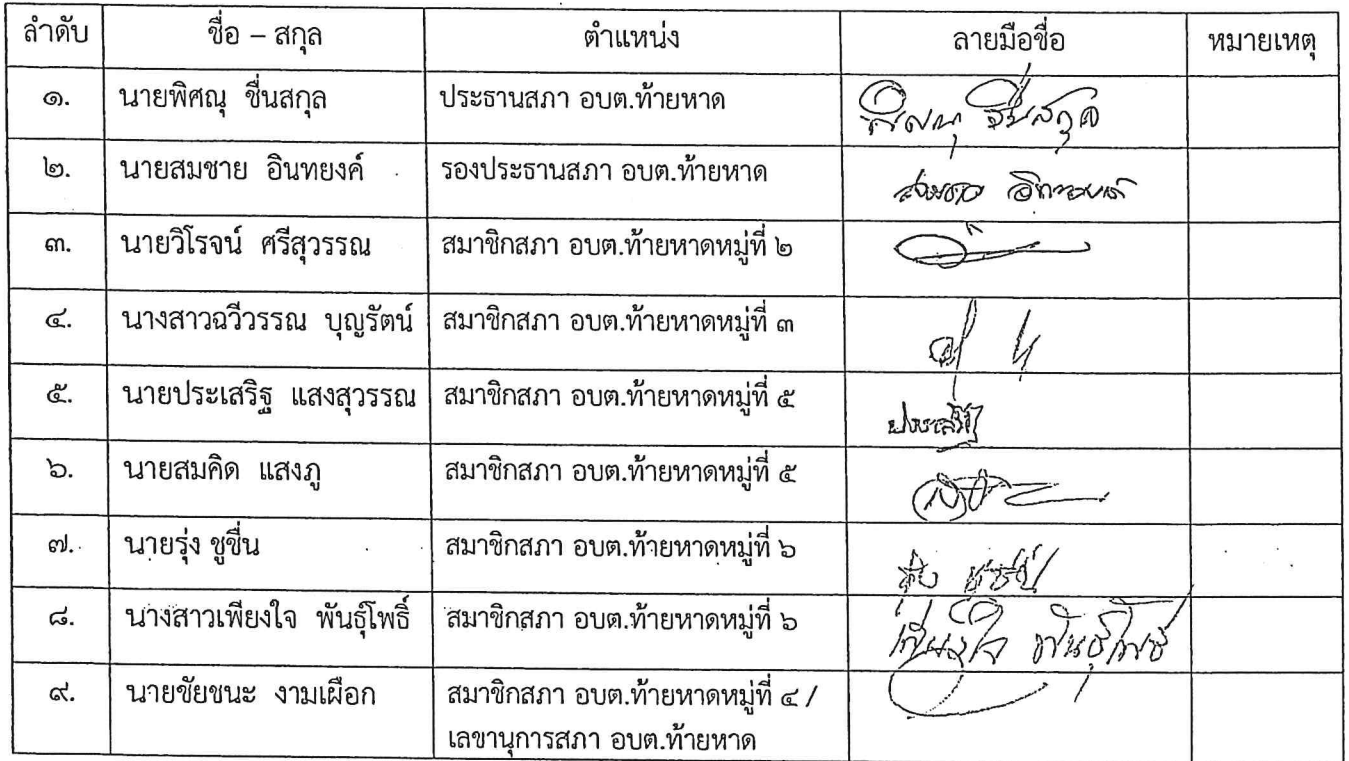 ลำดับ ชื่อ – สกุล ตำแหน่ง ลายมือชื่อ หมายเหตุ
๑. นายพิศณุ ชื่นสกุล ประธานสภา อบต.ท้ายหาด พิศณุ ชื่นสกุล
๒. นายสมชาย อินทยงค์ รองประธานสภา อบต.ท้ายหาด สมชาย อินทยงค์
๓. นายวิโรจน์ ศรีสุวรรณ สมาชิกสภา อบต.ท้ายหาดหมู่ที่ ๒
๔. นางสาวฉวีวรรณ บุญรัตน์ สมาชิกสภา อบต.ท้ายหาดหมู่ที่ ๓
๕. นายประเสริฐ แสงสุวรรณ สมาชิกสภา อบต.ท้ายหาดหมู่ที่ ๕ ประเสริฐ
๖. นายสมคิด แสงภู สมาชิกสภา อบต.ท้ายหาดหมู่ที่ ๕
๗. นายรุ่ง ชูชื่น สมาชิกสภา อบต.ท้ายหาดหมู่ที่ ๖ รุ่ง ชูชื่น
๘. นางสาวเพียงใจ พันธุ์โพธิ์ สมาชิกสภา อบต.ท้ายหาดหมู่ที่ ๖ เพียงใจ พันธุ์โพธิ์
๙. นายชัยชนะ งามเผือก สมาชิกสภา อบต.ท้ายหาดหมู่ที่ ๔ /
เลขานุการสภา อบต.ท้ายหาด